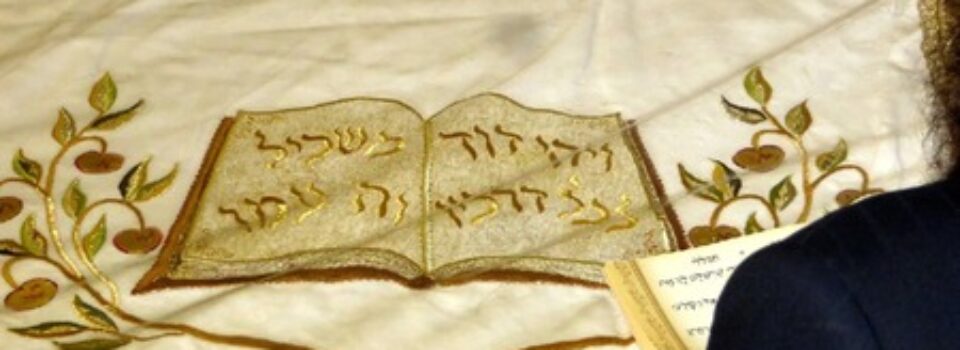 ויהי דוד
לכל דרכיו
משכיל
וה' עמו